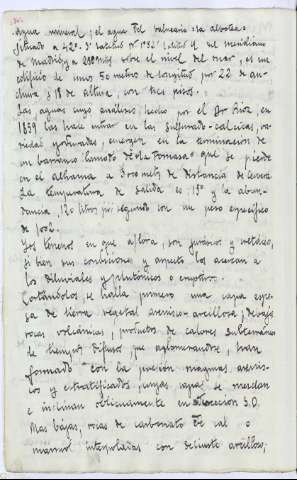 Agua mineral, el agua del balneario "La Albotea"
situado a 42º. 3' latitud Nº 1º32' latitud E. del meridiano
de Madrid y a 200 mts/ sobre el nivel del mar, es un
edificio de unos 50 metros de longitud por 22 de an-
chura y 18 de altura, con tres pisos.
Las aguas cuyo análisis/ hecho por el Dr Ríoz, en
1859 las hace entrar en las sulfurado-calcicas, va-
riedad yoduradas, emergen en la terminacion de
un barranco llamado de la que se pierde
en el alhama a 3 metros de distancia de
La temperatura de salida es 15º y la abun-
dancia, 120 litros por segundo con un peso específico
de 1002.
Los terrenos en que aflora, son jurásico y
si bien sus condiciones y aspecto los acercan a
los diluviales y plutónicos o eruptivos.
Cortándolos, se halla primero una capa espe-
sa de tierra vegetal arenisco-arcillosa; debajo
rocas volcánicas, productos de calores subterráneos
de tiempos difusos que aglomerandose, han
formado con la porción magmas, arenis-
cos y estratificados cuyas capas se mezclan
e inclinan oblicuamente en direccion S.O.
Mas bajas, rocas de carbonato de cal o
marmol interpoladas con arcilloso;